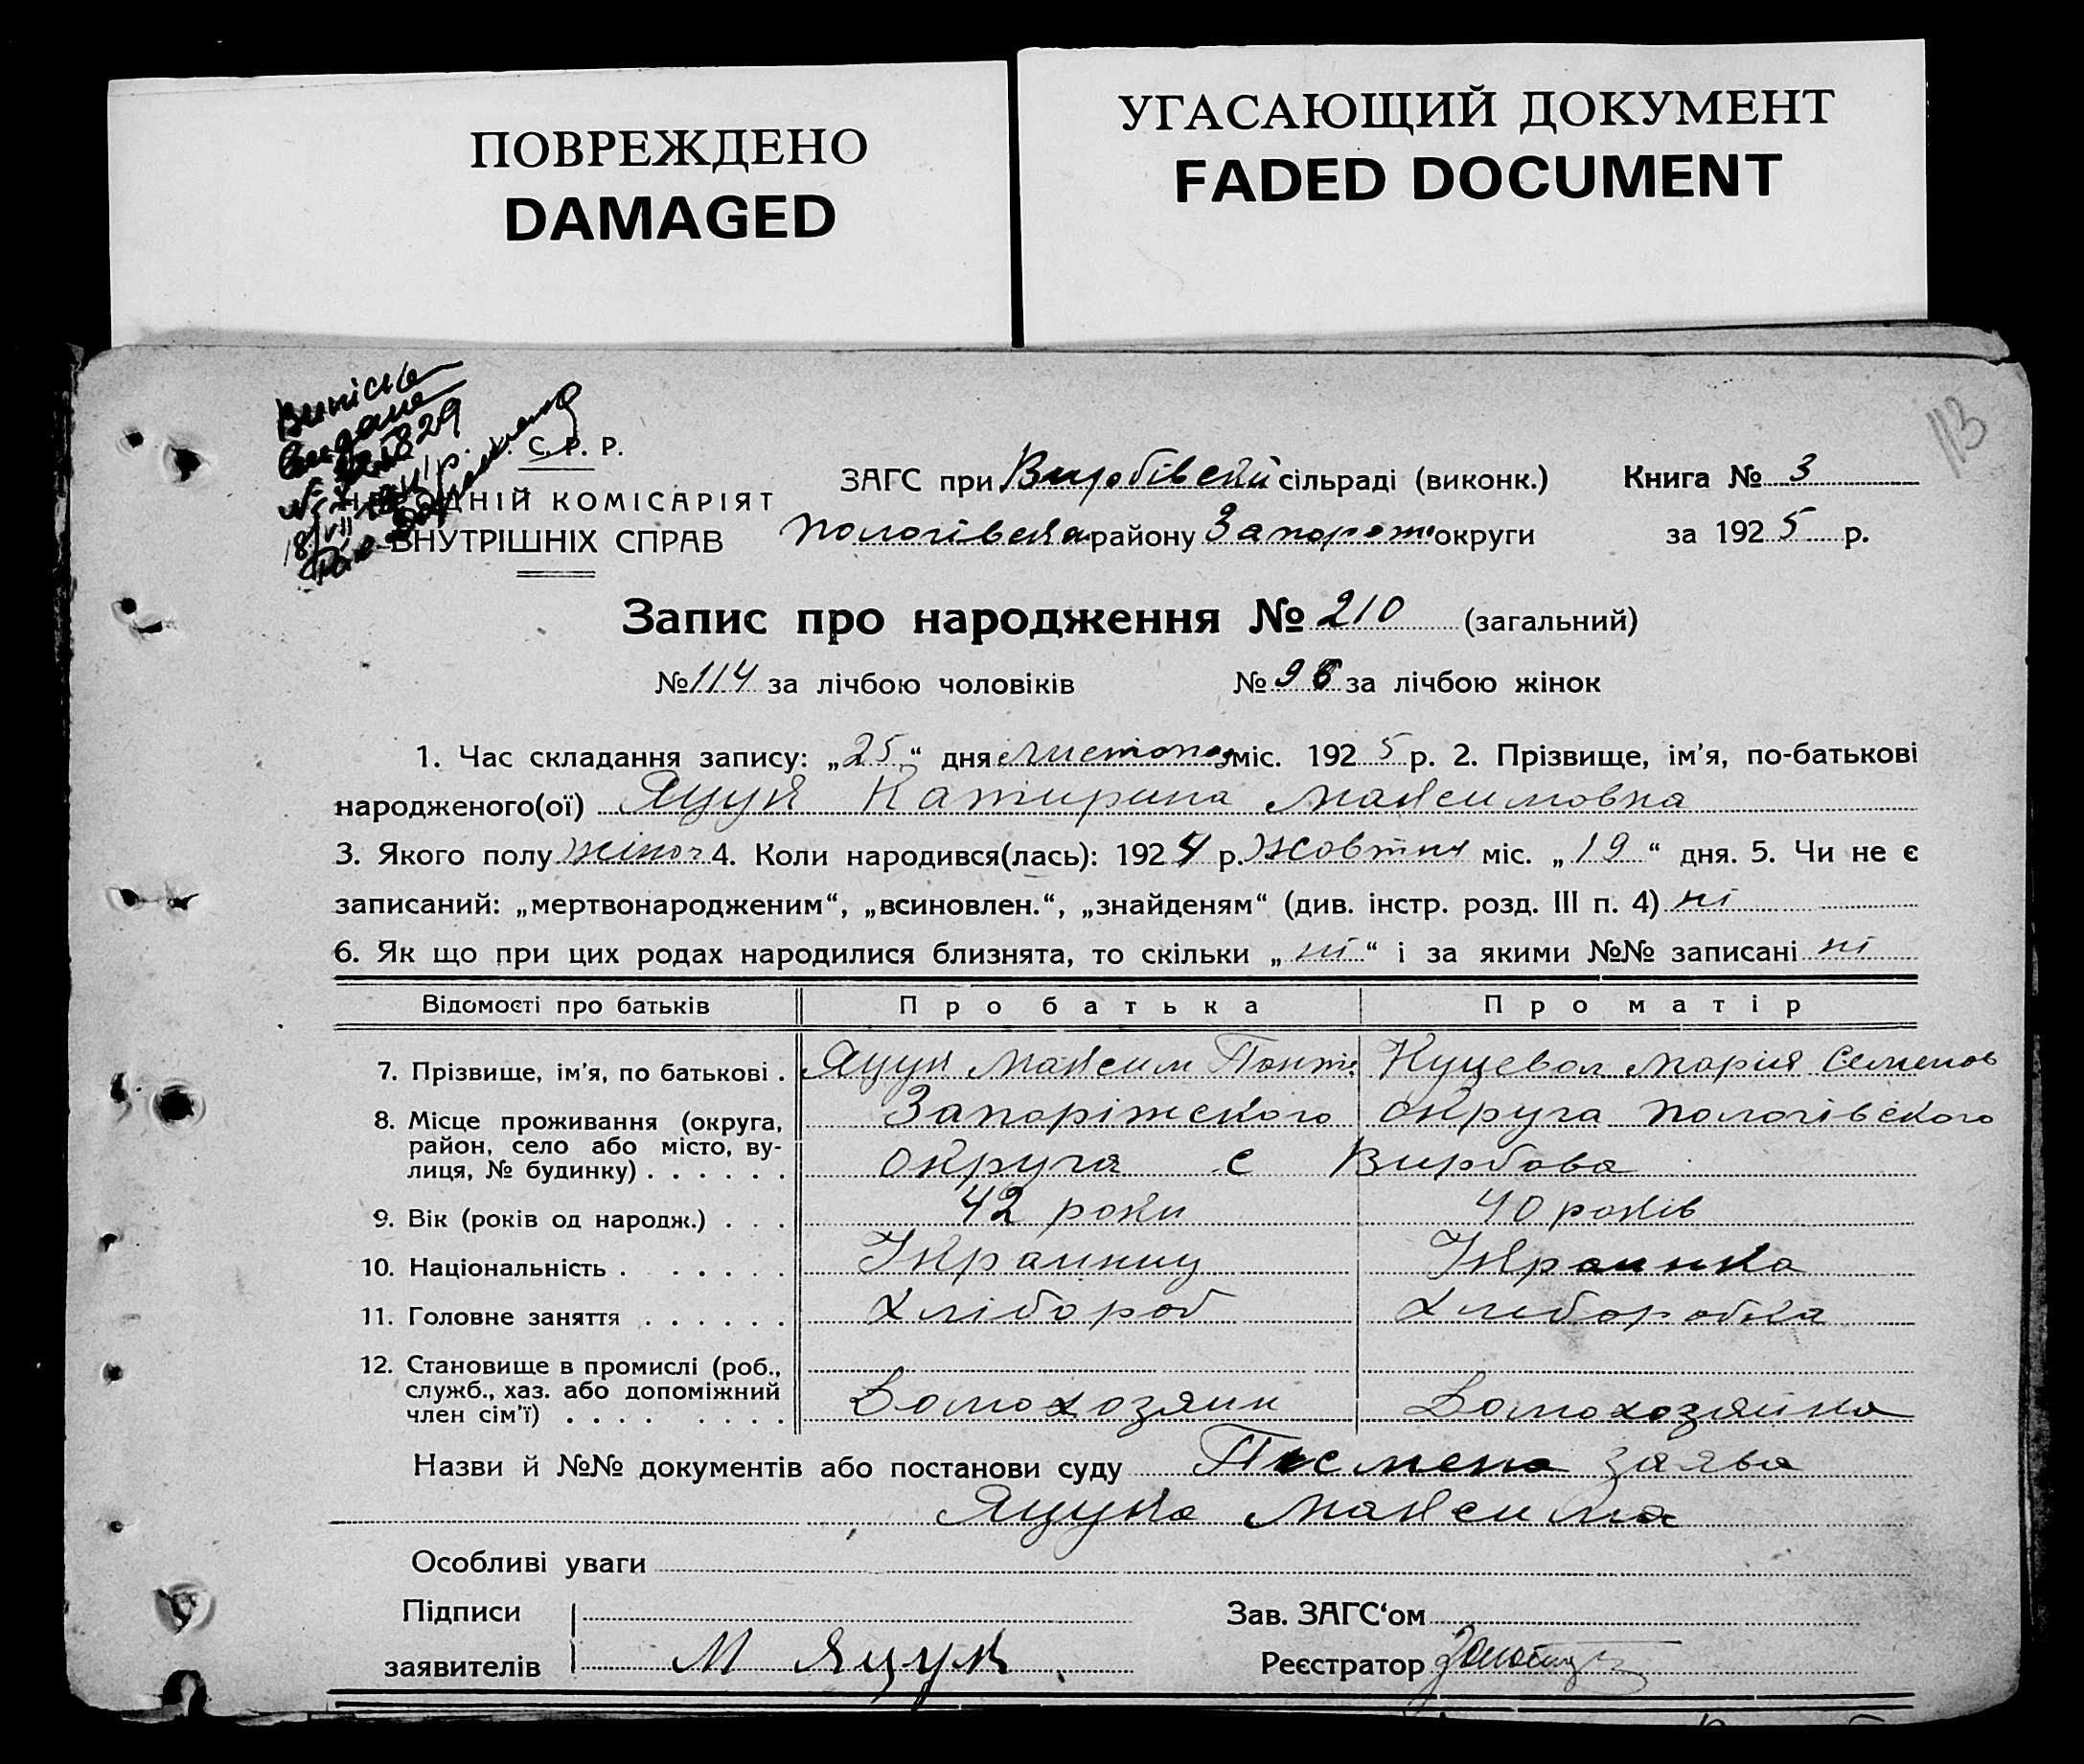 ПОВРЕЖДЕНО
DAMAGED
УГАСАЮЩИЙ ДОКУМЕНТ
FADED DOCUMENT
113
Випись
видана
С. Р. Р.
НАРОДНІЙ КОМІСАРІЯТ
ВНУТРІШНІХ СПРАВ
ЗАГС при Вирбівській сільраді (виконк.) Книга № 3
Пологівська району Запорож округи за 1925 р.
Запис про народження № 210 (загальний)
№ 114 за лічбою чоловіків № 96 за лічбою жінок
1. Час складання запису: „25“ дня листопад міс. 1925 р. 2. Прізвище, ім’я, по-батькові
народженого(ої) Яцук Катирина Максимовна
3. Якого полу жіноч 4. Коли народився(лась): 1924 р. Жовтня міс. „19“ дня. 5. Чи не є
записаний: „мертвонародженим“, „всиновлен.“, „знайденям“ (див. інстр. розд. III п. 4) ні
6. Як що при цих родах народилися близнята, то скільки „ні“ і за якими №№ записані ні
Відомості про батьків Про батька Про матір
7. Прізвище, ім’я, по батькові . Яцук Максим Панте Куцевол Мария Семенов
8. Місце проживання (округа, Запоріжского округа Пологівского
район, село або місто, ву-
лиця, № будинку) . . . . . . округа с Вирбова
9. Вік (років од народж.) . . . 42 роки 40 років
10. Національність . . . . . . Украинец Украинка
11. Головне заняття . . . . . . хлібороб хлиборобка
12. Становище в промислі (роб.,
служб., хаз. або допоміжний
член сім’ї) . . . . . . . . Домохозяин Домохозяйка
Назви й №№ документів або постанови суду Писмена заява
Яцука Максима
Особливі уваги
Підписи Зав. ЗАГС‘ом
заявителів М Яцук Реєстратор